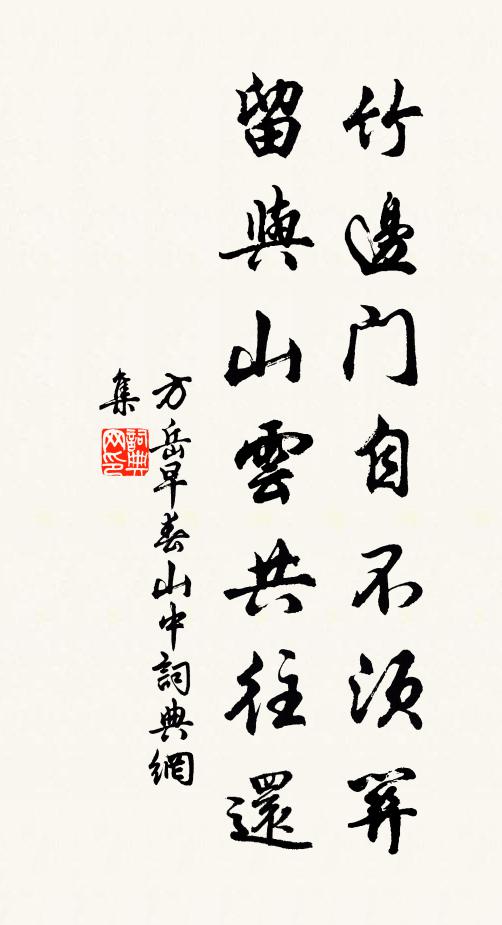 竹邊門自不須關
留與山雲共往還
方岳早春山中詞典網
集
詞典
网印